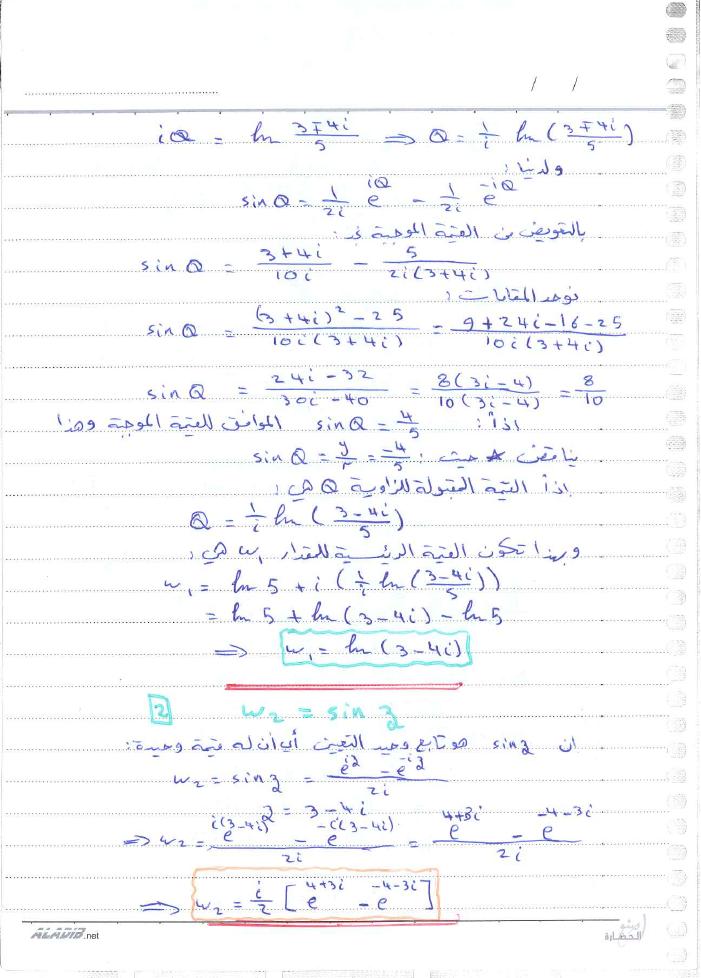 / /
iQ = ln (3∓4i)/5 ⟹ Q = 1/i ln((3∓4i)/5)
ولدينا:
sin Q = 1/2i e^{iQ} − 1/2i e^{−iQ}
بالتعويض من القيمة الموجبة نجد:
sin Q = (3+4i)/10i − 5/(2i(3+4i))
نوحد المقامات:
sin Q = ((3+4i)² − 25)/(10i(3+4i)) = (9+24i−16−25)/(10i(3+4i))
sin Q = (24i−32)/(30i−40) = 8(3i−4)/10(3i−4) = 8/10
اذاً: sin Q = 4/5 الموافق للقيمة الموجبة وهذا
يناقض * حيث: sin Q = y/r = −4/5
اذاً القيمة المقبولة للزاوية Q هي:
Q = 1/i ln((3−4i)/5)
وبهذا تكون القيمة الرئيسية للمقدار w₁ هي:
w₁ = ln 5 + i(1/i ln((3−4i)/5))
= ln 5 + ln(3−4i) − ln 5
⟹ w₁ = ln(3−4i)
2 w₂ = sin z
ان sin z هو تابع وحيد التعيين أي أن له قيمة وحيدة:
w₂ = sin z = (e^{iz} − e^{−iz})/2i
z = 3−4i
⟹ w₂ = (e^{i(3−4i)} − e^{−i(3−4i)})/2i = (e^{4+3i} − e^{−4−3i})/2i
⟹ w₂ = i/2 [e^{4+3i} − e^{−4−3i}]
ALADIB.net
الحضارة